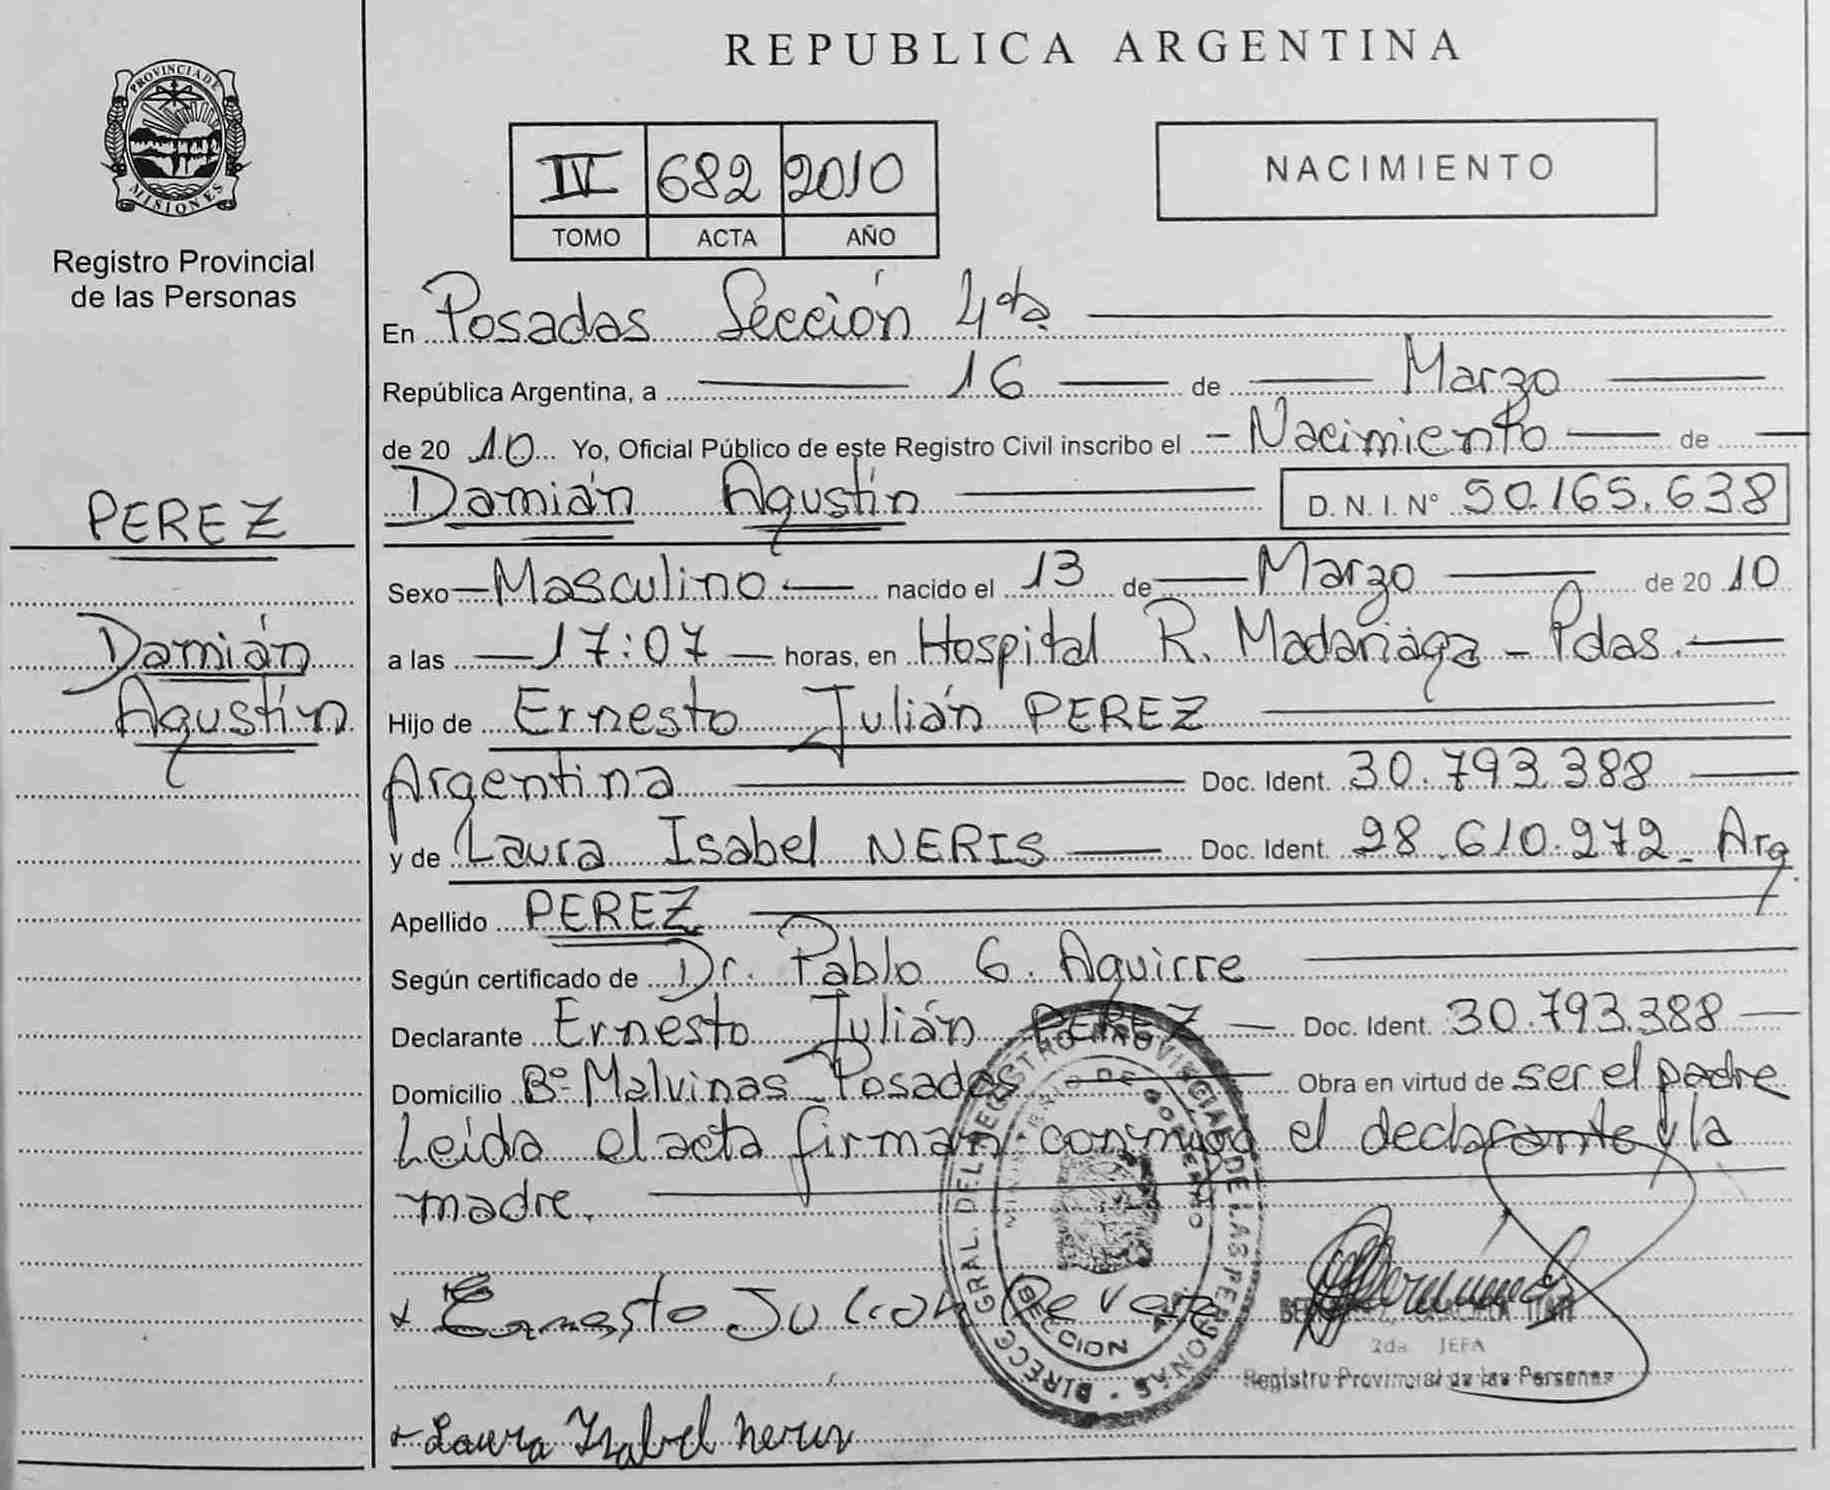 PROVINCIA DE
MISIONES
Registro Provincial
de las Personas
PEREZ
Damián
Agustín
REPUBLICA ARGENTINA
IV 682 2010
TOMO ACTA AÑO
NACIMIENTO
En Posadas Sección 4ta
República Argentina, a 16 de Marzo
de 2010 Yo, Oficial Público de este Registro Civil inscribo el Nacimiento de
Damián Agustín D. N. I. N° 50.165.638
Sexo Masculino nacido el 13 de Marzo de 2010
a las 17:07 horas, en Hospital R. Madariaga - Pdas.
Hijo de Ernesto Julián PEREZ
Argentina Doc. Ident. 30.793.388
y de Laura Isabel NERIS Doc. Ident. 28.610.272 - Arg.
Apellido PEREZ
Según certificado de Dr. Pablo G. Aguirre
Declarante Ernesto Julián PEREZ Doc. Ident. 30.793.388
Domicilio B° Malvinas Posadas Obra en virtud de ser el padre
Leída el acta firman conmigo el declarante y la
madre.
DIRECC. GRAL. DEL REGISTRO PROVINCIAL DE LAS PERSONAS
MINISTERIO DE GOBIERNO
SECCION
Ernesto Julian
2da. JEFA
Registro Provincial de las Personas
Laura Isabel Neris